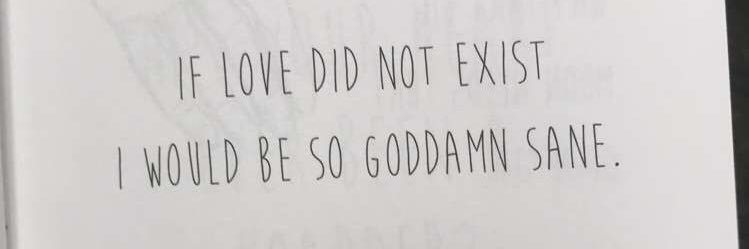 IF LOVE DID NOT EXIST
I WOULD BE SO GODDAMN SANE.